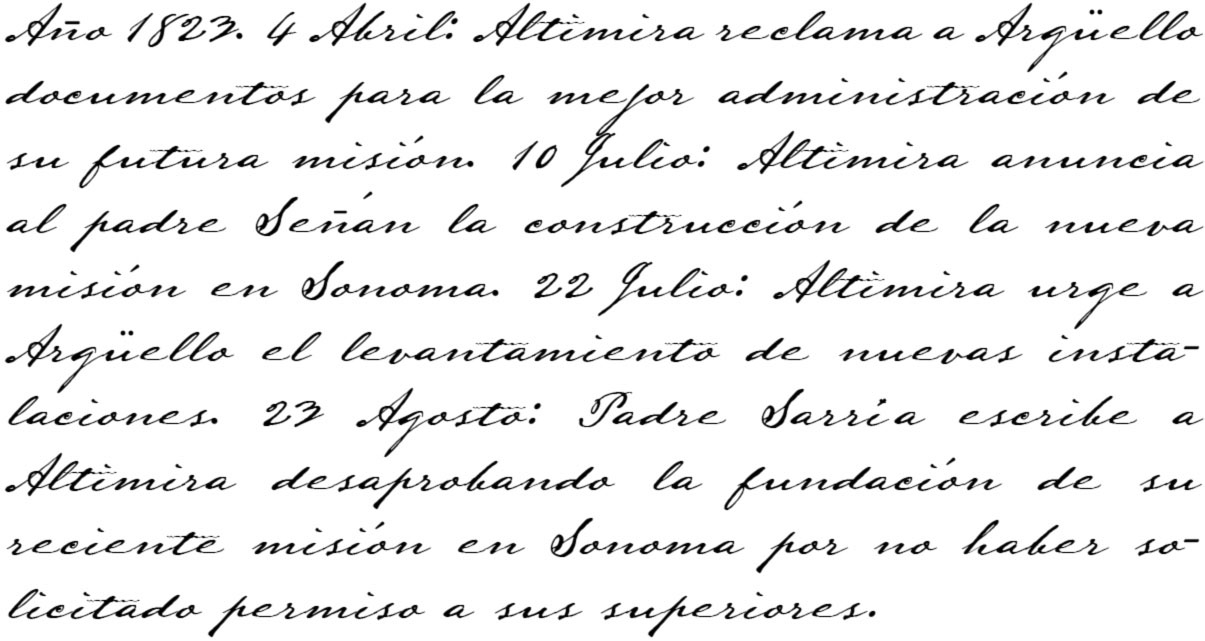 Año 1823. 4 Abril: Altimira reclama a Argüello
documentos para la mejor administración de
su futura misión. 10 Julio: Altimira anuncia
al padre Señán la construcción de la nueva
misión en Sonoma. 22 Julio: Altimira urge a
Argüello el levantamiento de nuevas insta-
laciones. 23 Agosto: Padre Sarría escribe a
Altimira desaprobando la fundación de su
reciente misión en Sonoma por no haber so-
licitado permiso a sus superiores.